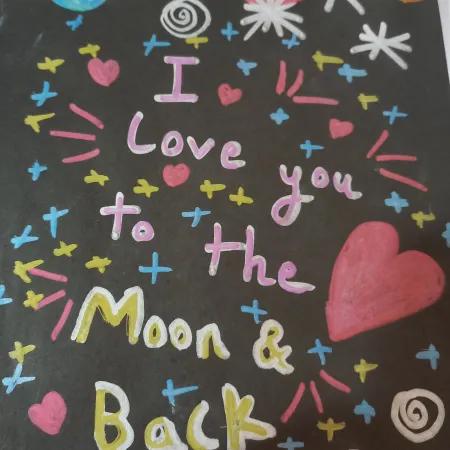 I
Love you
to the
Moon &
Back